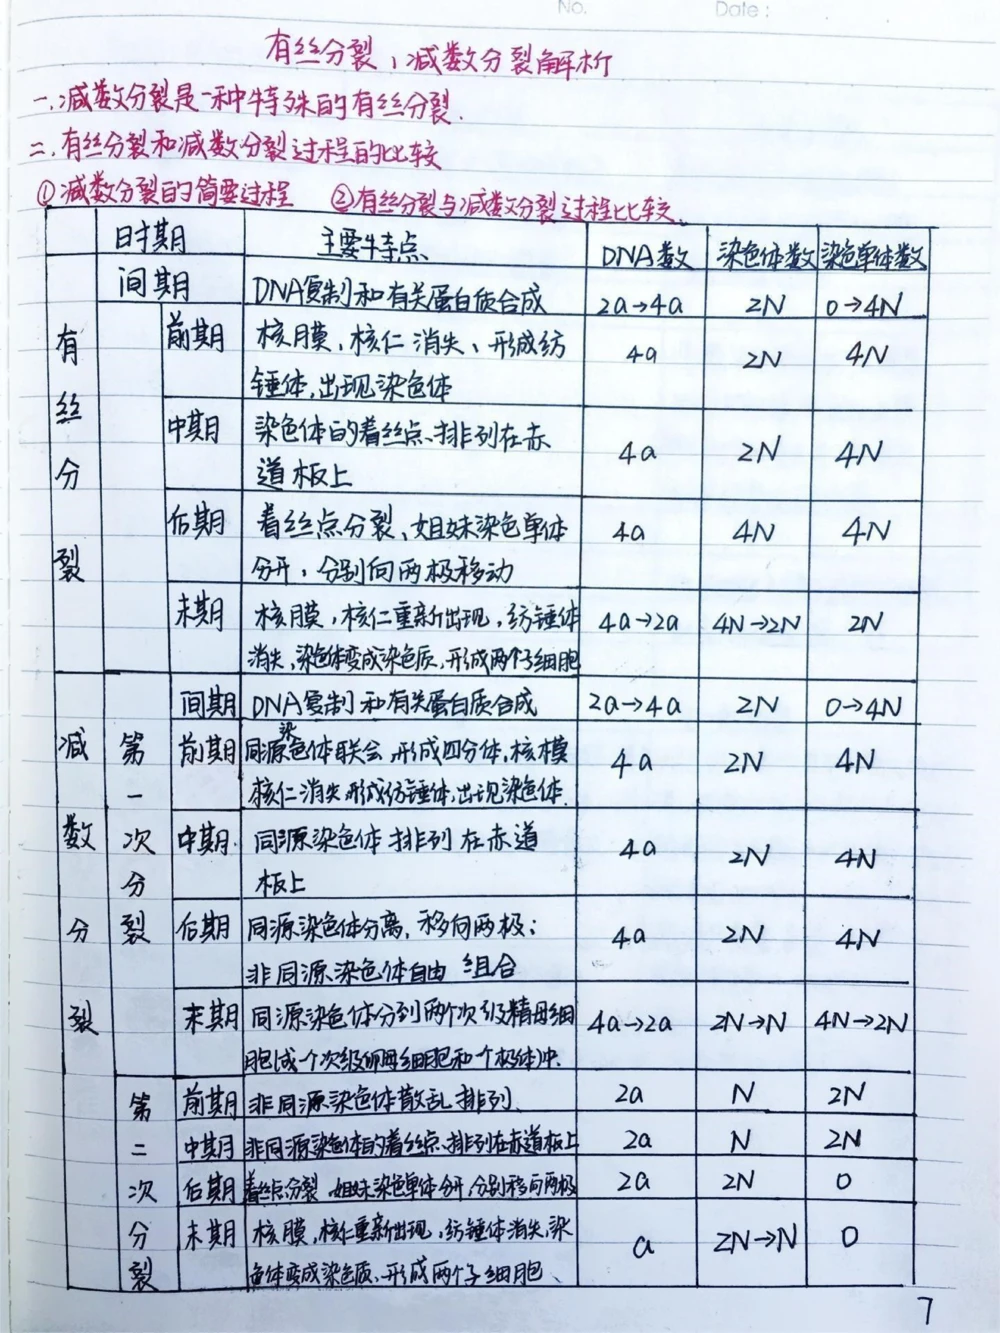 No. Date:
有丝分裂、减数分裂解析
一.减数分裂是一种特殊的有丝分裂.
二.有丝分裂和减数分裂过程的比较
①减数分裂的简要过程 ②有丝分裂与减数分裂过程比较.
时期 主要特点 DNA数 染色体数 染色单体数
有丝分裂
间期 DNA复制和有关蛋白质合成 2a→4a 2N 0→4N
前期 核膜、核仁消失、形成纺 4a 2N 4N
锤体,出现染色体
中期 染色体的着丝点、排列在赤 4a 2N 4N
道板上
后期 着丝点分裂、姐妹染色单体 4a 4N 4N
分开,分别向两极移动
末期 核膜,核仁重新出现,纺锤体 4a→2a 4N→2N 2N
消失,染色体变成染色质,形成两个子细胞
减数分裂
第一次分裂
间期 DNA复制和有关蛋白质合成 2a→4a 2N 0→4N
前期 同源染色体联会,形成四分体,核模 4a 2N 4N
核仁消失形成纺锤体,出现染色体.
中期. 同源染色体排列在赤道 4a 2N 4N
板上
后期 同源染色体分离,移向两极; 4a 2N 4N
非同源染色体自由组合
末期 同源染色体分到两个次级精母细 4a→2a 2N→N 4N→2N
胞(或一个次级卵母细胞和一个极体)中.
第二次分裂
前期 非同源染色体散乱排列. 2a N 2N
中期 非同源染色体的着丝点、排列在赤道板上 2a N 2N
后期 着丝点分裂,姐妹染色单体分开,分别移向两极 2a 2N 0
末期 核膜,核仁重新出现,纺锤体消失,染 a 2N→N 0
色体变成染色质、形成两个子细胞、
7